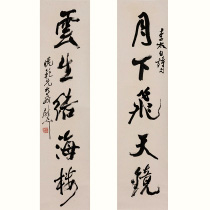 月下飛天鏡
李太白詩句
雲生結海樓